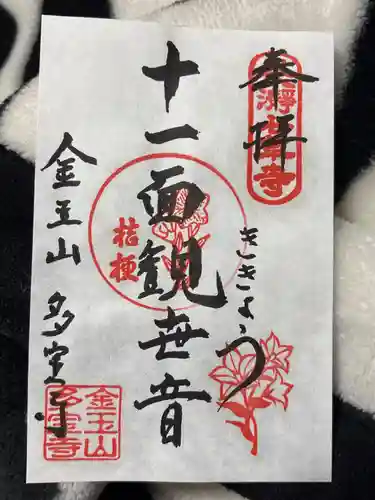 奉拝
十一面観世音
ききょう
桔梗
金玉山 多宝寺
金玉山
多宝寺